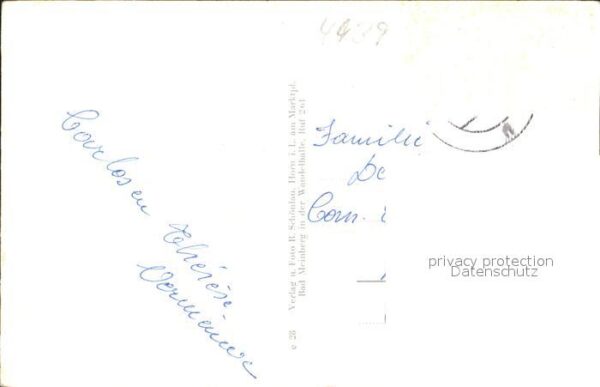 4439
Carlosen
Thérèse
Vermeiner
c 28 Verlag u. Foto R. Schönlau, Horn i. L. am Marktpl.
Bad Meinberg in der Wandelhalle, Ruf 261
Familie
De
Com.
privacy protection
Datenschutz